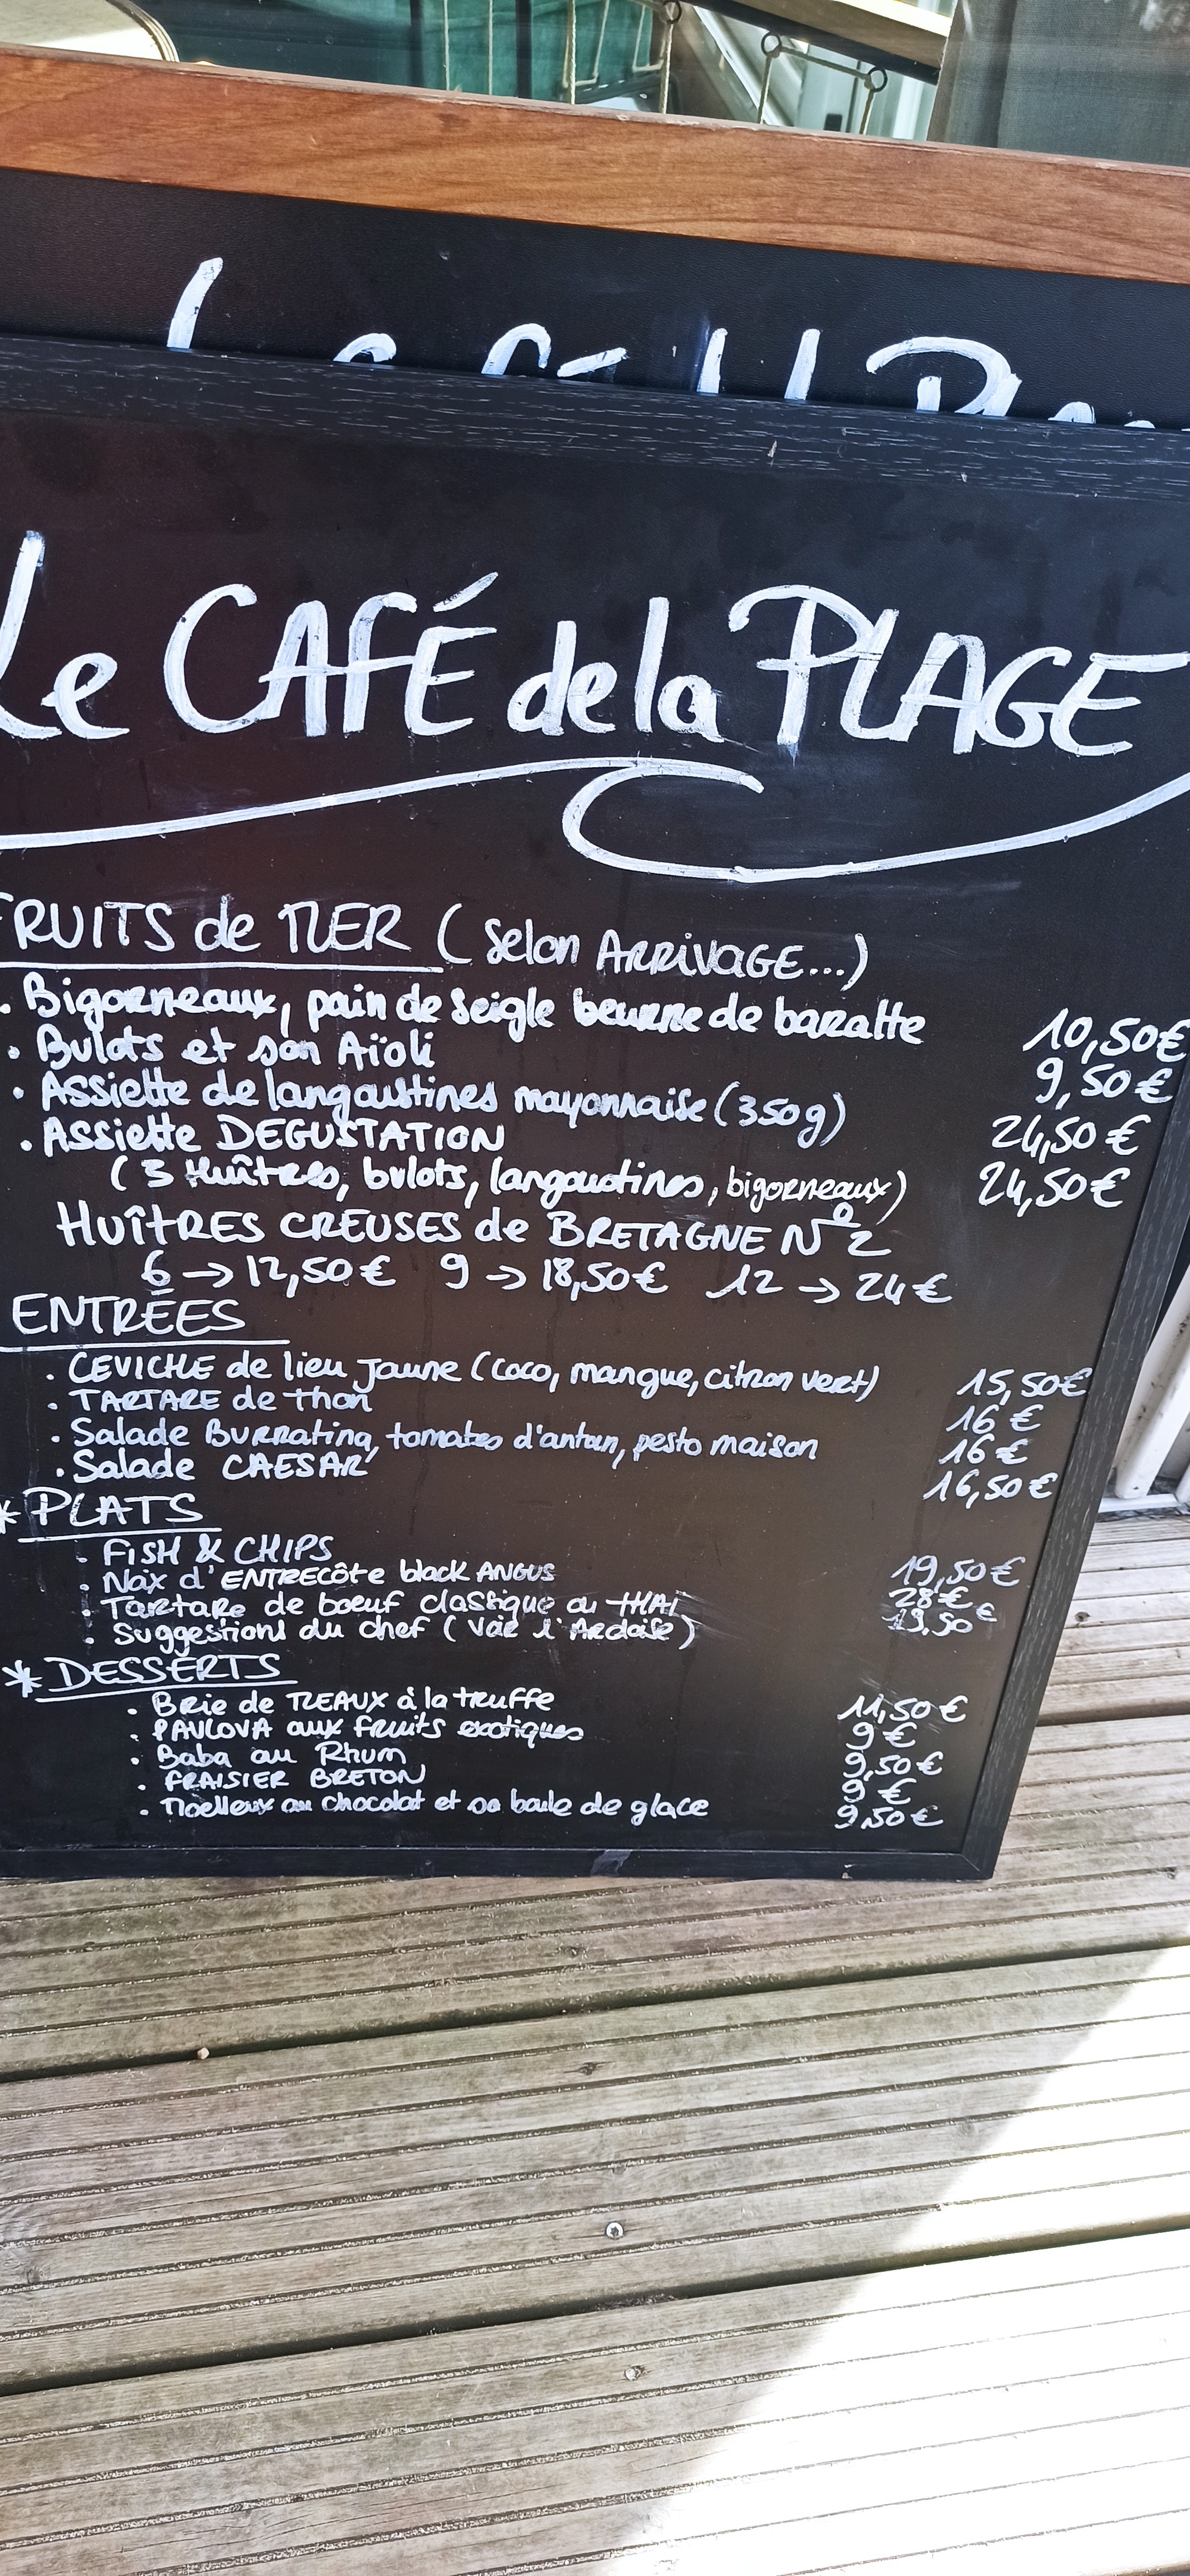 Le CAFÉ de la PLAGE
FRUITS de MER (Selon ARRIVAGE...)
. Bigorneaux, pain de seigle beurre de baratte 10,50€
. Bulots et son Aïoli 9,50€
. Assiette de langoustines mayonnaise (350g) 24,50€
. Assiette DEGUSTATION
( 3 Huîtres, bulots, langoustines, bigorneaux) 24,50€
HUÎTRES CREUSES de BRETAGNE N°2
6 → 12,50€ 9 → 18,50€ 12 → 24€
ENTRÉES
. CEVICHE de lieu jaune (coco, mangue, citron vert) 15,50€
. TARTARE de thon 16€
. Salade Burratina, tomates d'antan, pesto maison 16€
. Salade CAESAR 16,50€
* PLATS
. FISH & CHIPS 19,50€
. Noix d'ENTRECôte black ANGUS 28€
. Tartare de boeuf classique ou THAI 19,50€
. Suggestions du chef ( voir l'Ardoise )
* DESSERTS
. Brie de MEAUX à la truffe 11,50€
. PAVLOVA aux fruits exotiques 9€
. Baba au Rhum 9,50€
. FRAISIER BRETON 9€
. Moelleux au chocolat et sa boule de glace 9,50€